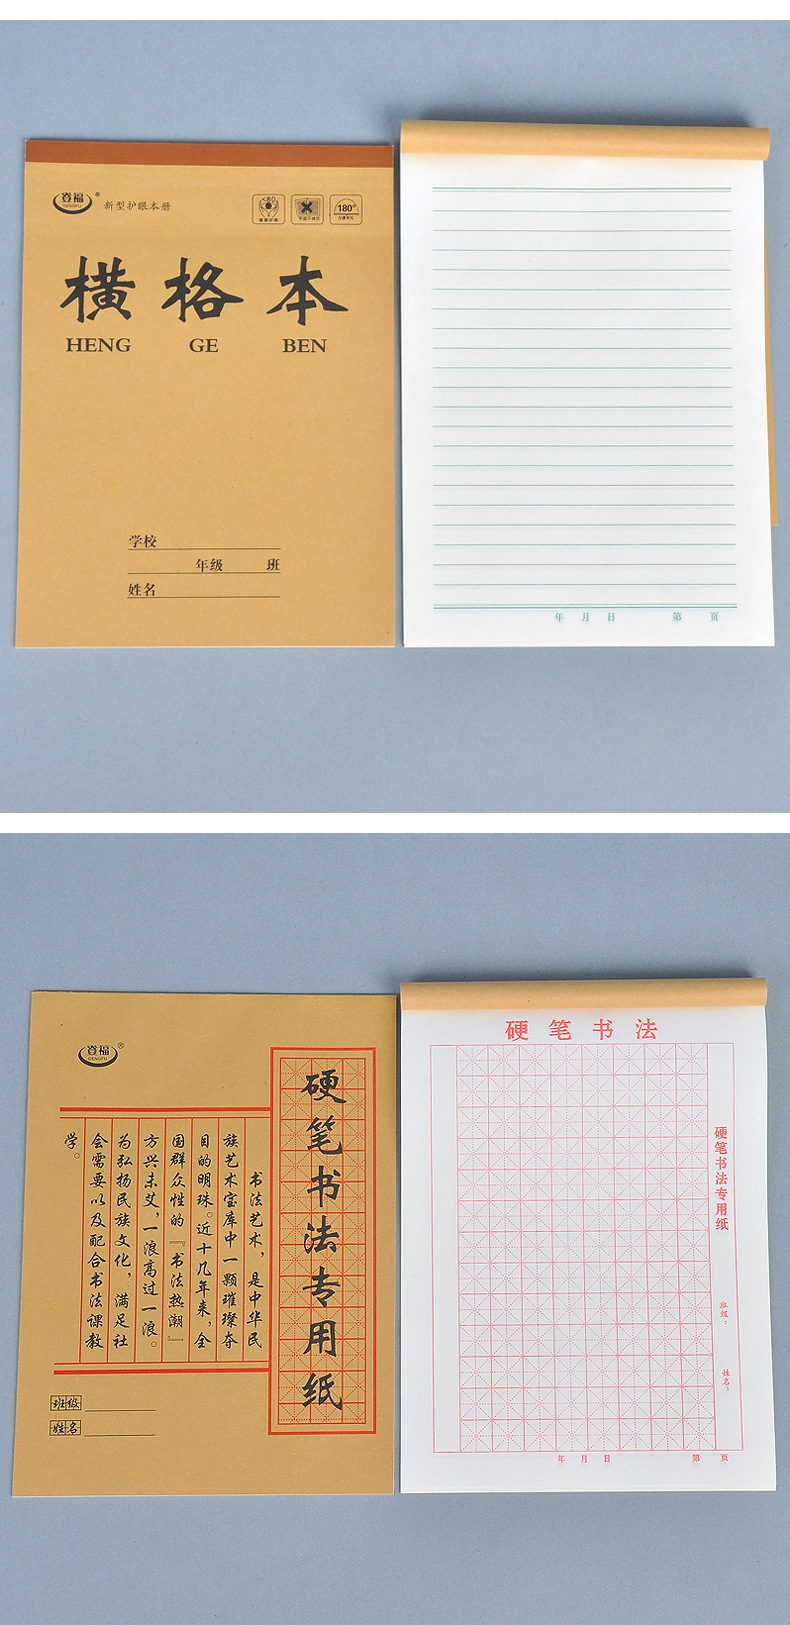 登福
DENGFU
®
新型护眼本册
180°
横格本
HENG GE BEN
学校
年级 班
姓名
年 月 日 第 页
登福
DENGFU
®
硬笔书法专用纸
书法艺术，是中华民
族艺术宝库中一颗璀璨夺
目的明珠。近十几年来，全
国群众性的『书法热潮』
方兴未艾，一浪高过一浪。
为弘扬民族文化，满足社
会需要以及配合书法课教
学。
班级
姓名
硬笔书法
硬笔书法专用纸
班级：
姓名：
年 月 日 第 页